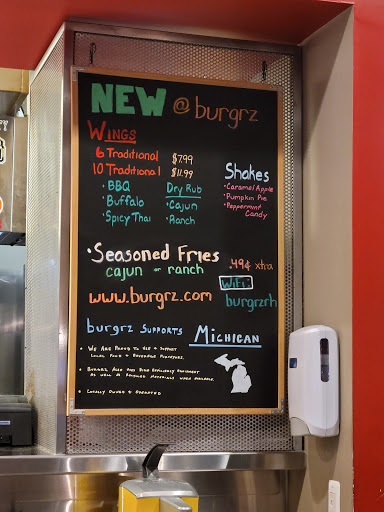 NEW @ burgrz
WINGS
6 Traditional $7.99
10 Traditional $11.99
• BBQ
• Buffalo
• Spicy Thai
Dry Rub
• Cajun
• Ranch
Shakes
• Caramel Apple
• Pumpkin Pie
• Peppermint Candy
• Seasoned Fries
cajun or ranch .49¢ xtra
www.burgrz.com
WiFi:
burgrzrh
burgrz SUPPORTS MICHIGAN
• WE ARE PROUD TO USE & SUPPORT
LOCAL FOOD & BEVERAGE PURVEYORS.
• BURGRZ ALSO USES HIGH EFFICIENCY EQUIPMENT
AS WELL AS RECYCLED MATERIALS WHEN AVAILABLE.
• LOCALLY OWNED & OPERATED